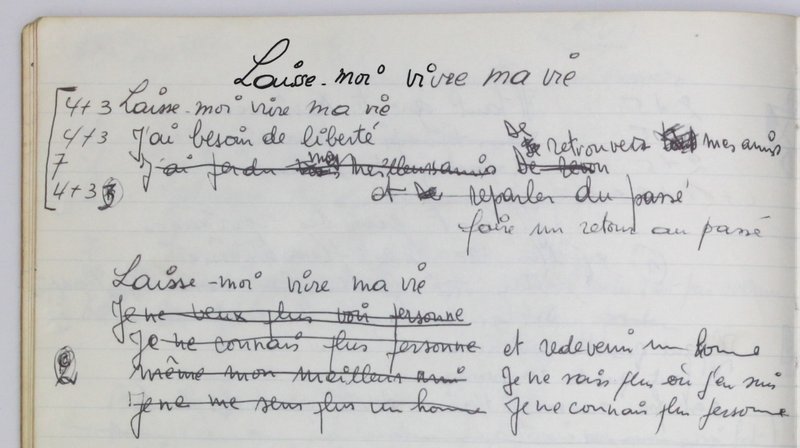 Laisse-moi vivre ma vie
4+3 Laisse-moi vivre ma vie
4+3 J'ai besoin de liberté
7 J'ai perdu mes meilleurs amis De retrouver mes amis
4+3 et reparler du passé
faire un retour au passé
Laisse-moi vivre ma vie
Je ne veux plus voir personne
Je ne connais plus personne et redevenir un homme
même mon meilleur ami Je ne sais plus où j'en suis
Je ne me sens plus un homme Je ne connais plus personne